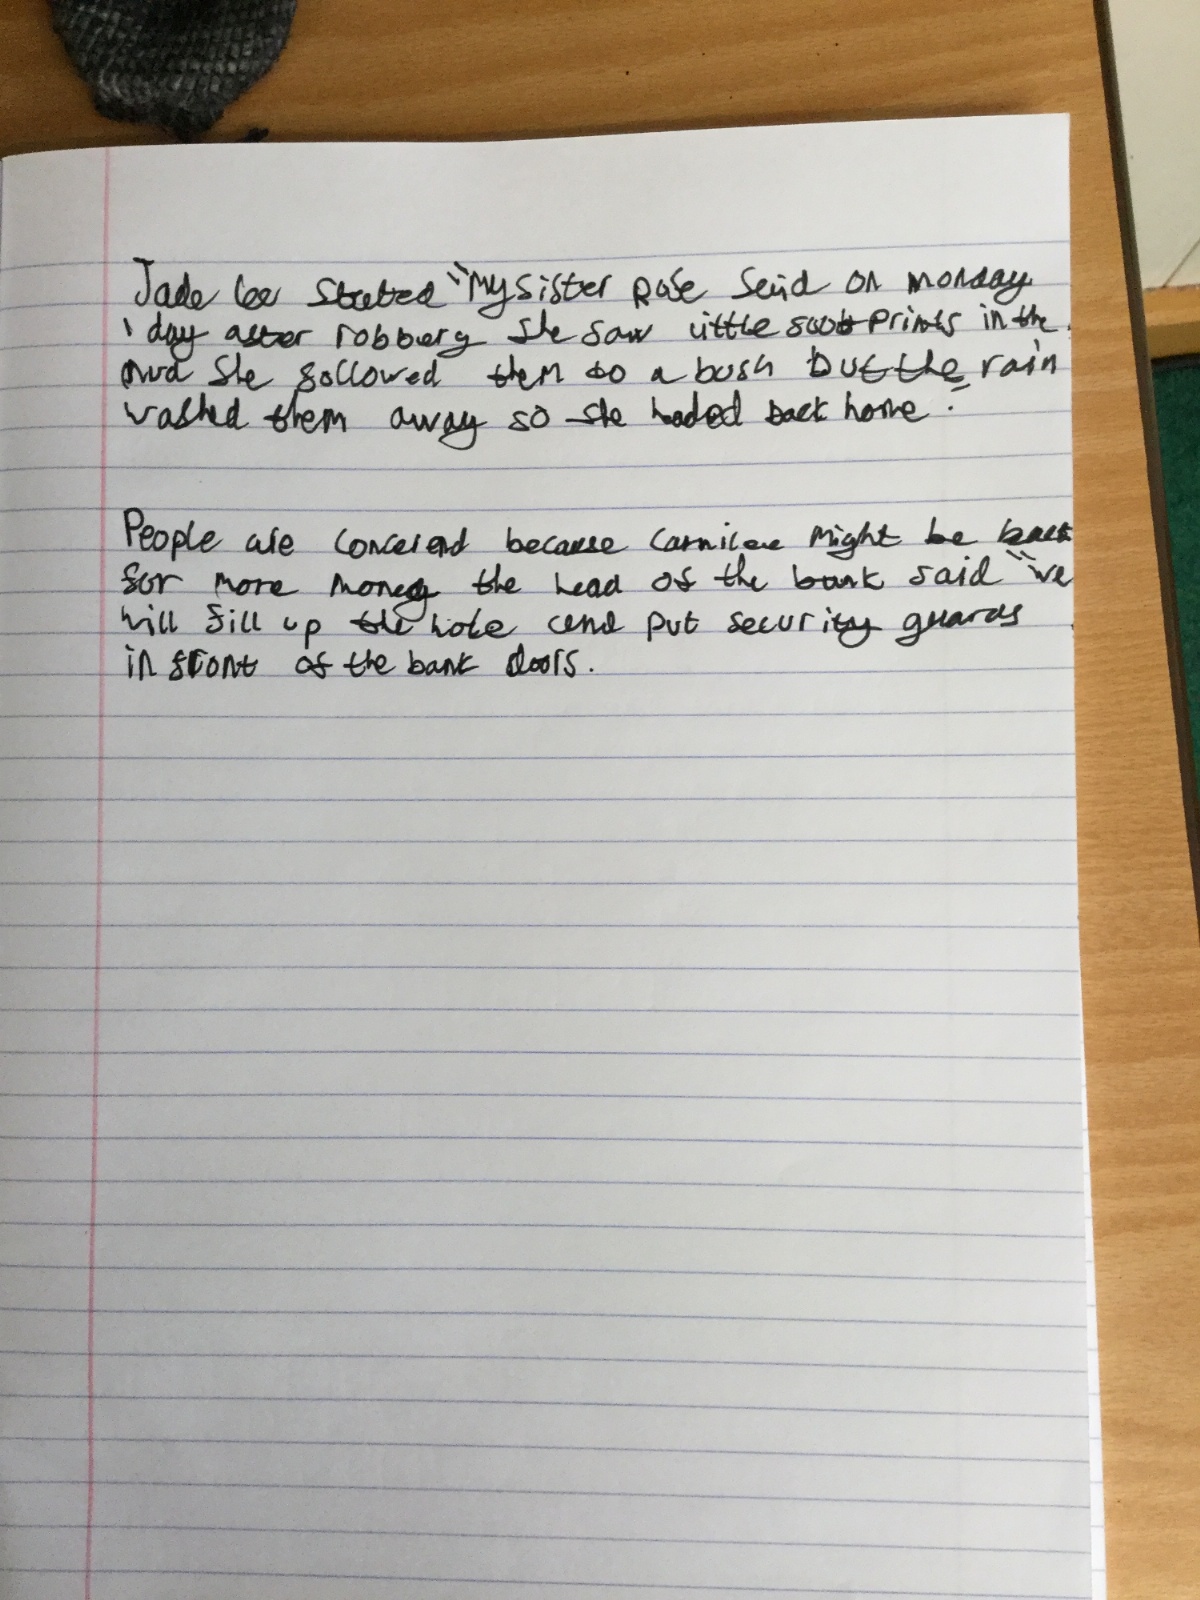 Jade lee stated "My sister Rose Said on monday
1 day after robbery she saw little foot prints in the
mud she followed them to a bush but the rain
washed them away so she haded back home.
People are concerend because Carnilee Might be back
for more money the head of the bank said "we
will fill up the hole and put security guards
in front of the bank doors.